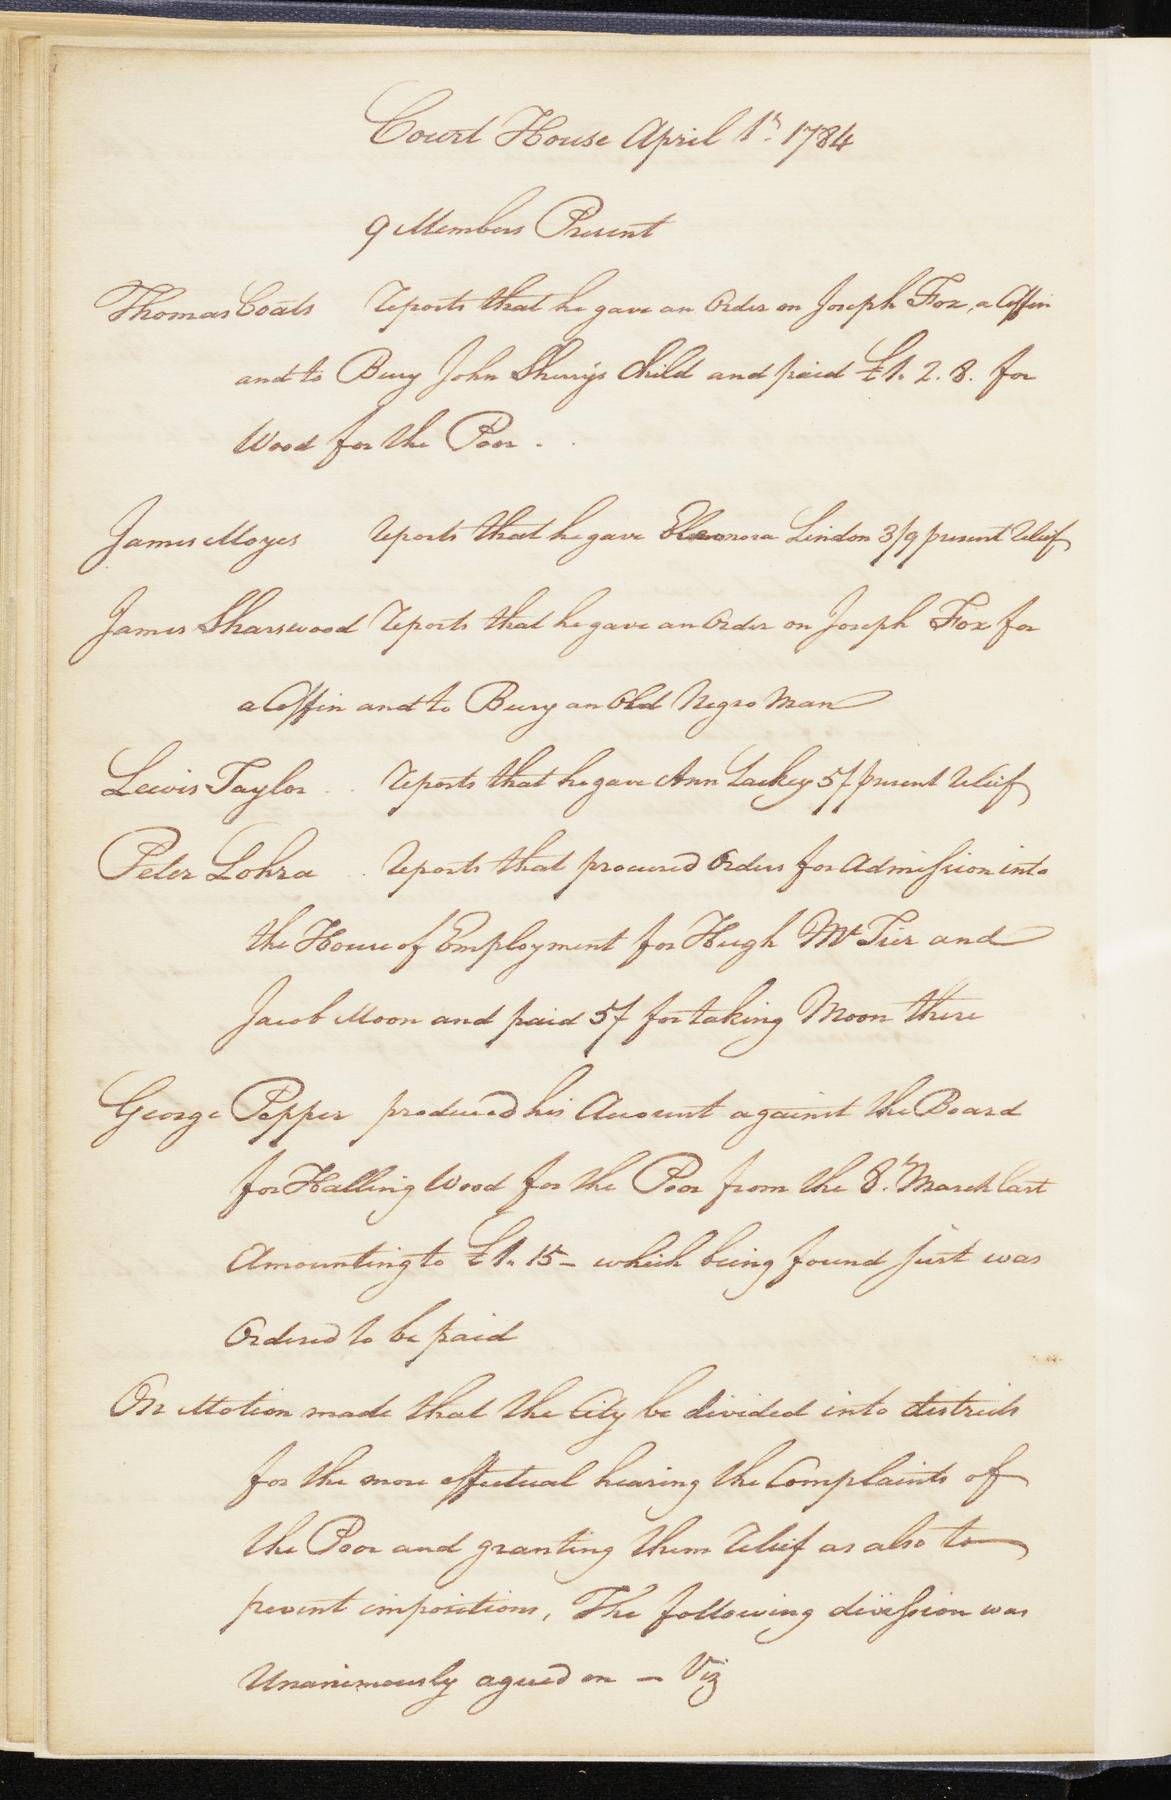 Court House April 1st. 1784
9 Members Present
Thomas Coats reports that he gave an Order on Joseph Fox, a Coffin
and to Bury John Sherrys Child and paid £1. 2. 8. for
Wood for the Poor -
James Moyes reports that he gave Eleonora Lindon 3/9 present relief
James Sharswood reports that he gave an Order on Joseph Fox for
a Coffin and to Bury an Old Negro Man
Lewis Taylor .. reports that he gave Ann Lackey 5/ present relief
Peter Lohra . reports that procured Orders for Admission into
the House of Employment for Hugh Mc Tier and
Jacob Moon and paid 5/ for taking Moon there
George Pepper produced his Account against the Board
for Halling Wood for the Poor from the 8th. March last
Amounting to £1. 15 - which being found just was
Ordered to be paid
On Motion made that the City be divided into districts
for the more effectual hearing the Complaints of
the Poor and granting them relief as also to
prevent impositions, The following division was
Unanimously agreed on - Viz